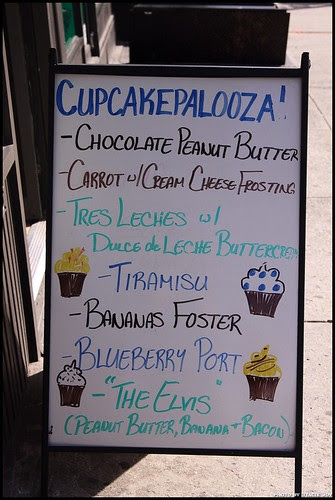 CUPCAKEPALOOZA!
- CHOCOLATE PEANUT BUTTER
- CARROT w/ CREAM CHEESE FROSTING
- TRES LECHES w/
DULCE de LECHE BUTTERCREAM
- TIRAMISU
- BANANAS FOSTER
- BLUEBERRY PORT
- "THE ELVIS"
(PEANUT BUTTER, BANANA + BACON)